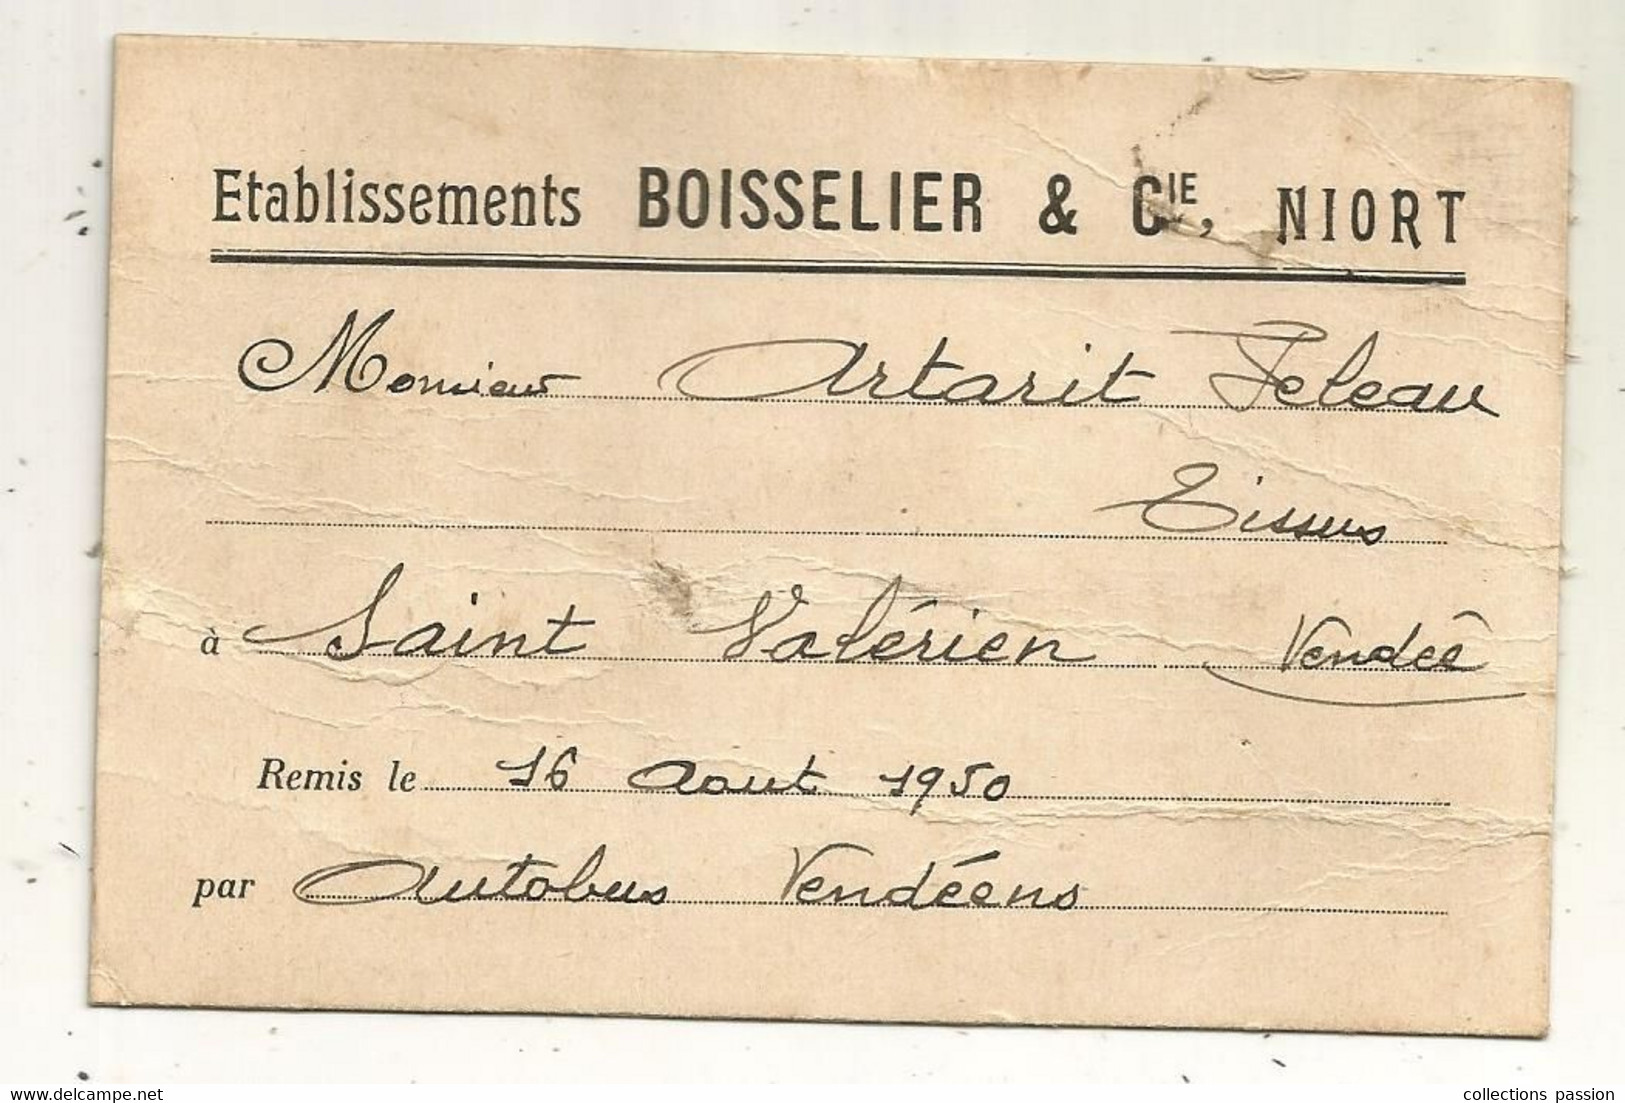 Etablissements BOISSELIER & CIE, NIORT
Monsieur Artarit Feleau
Tissus
à Saint Valérien Vendée
Remis le 16 Aout 1950
par Autobus Vendéens
collections passion